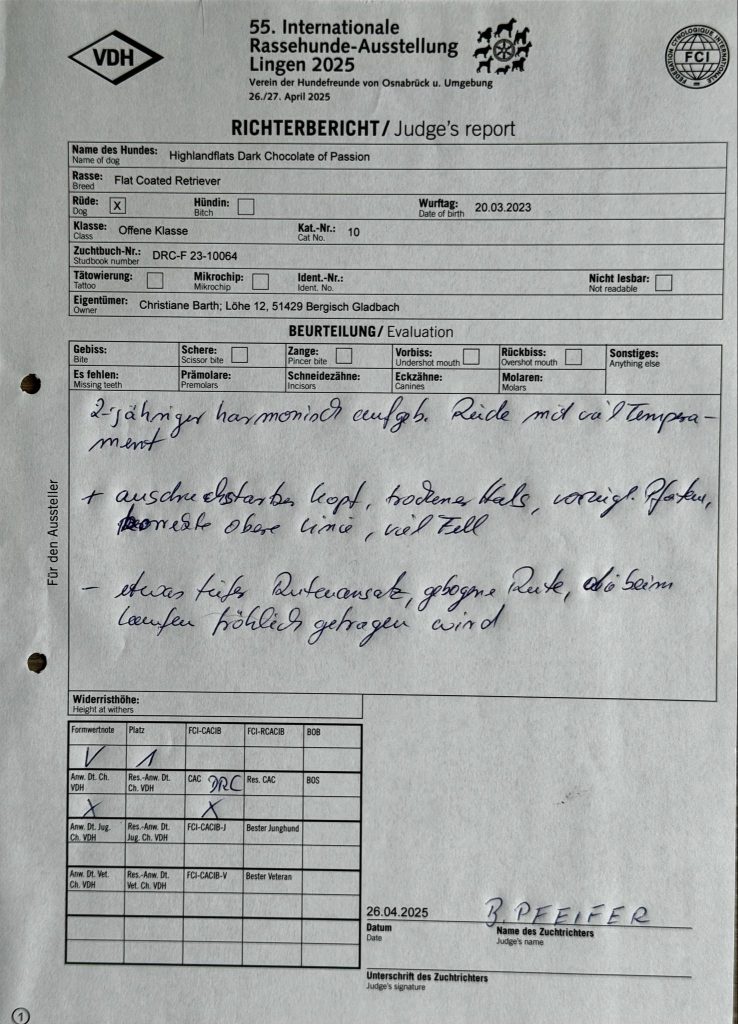 VDH
55. Internationale
Rassehunde-Ausstellung
Lingen 2025
Verein der Hundefreunde von Osnabrück u. Umgebung
26./27. April 2025
FEDERATION CYNOLOGIQUE INTERNATIONALE
FCI
RICHTERBERICHT/ Judge's report
Name des Hundes: Highlandflats Dark Chocolate of Passion
Name of dog
Rasse: Flat Coated Retriever
Breed
Rüde: X Hündin: Wurftag: 20.03.2023
Dog Bitch Date of birth
Klasse: Offene Klasse Kat.-Nr.: 10
Class Cat No.
Zuchtbuch-Nr.: DRC-F 23-10064
Studbook number
Tätowierung: Mikrochip: Ident.-Nr.: Nicht lesbar:
Tattoo Mikrochip Ident. No. Not readable
Eigentümer: Christiane Barth; Löhe 12, 51429 Bergisch Gladbach
Owner
BEURTEILUNG/ Evaluation
Gebiss: Schere: Zange: Vorbiss: Rückbiss: Sonstiges:
Bite Scissor bite Pincer bite Undershot mouth Overshot mouth Anything else
Es fehlen: Prämolare: Schneidezähne: Eckzähne: Molaren:
Missing teeth Premolars Incisors Canines Molars
2-jähriger harmonisch aufgeb. Rüde mit viel Tempera-
ment
+ ausdrucksstarker Kopf, trockener Hals, vorzügl. Pfoten,
korrekte obere Linie, viel Fell
- etwas tiefer Rutenansatz, gebogene Rute, die beim
Laufen fröhlich getragen wird
Für den Aussteller
Widerristhöhe:
Height at withers
Formwertnote Platz FCI-CACIB FCI-RCACIB BOB
V 1
Anw. Dt. Ch. Res.-Anw. Dt. CAC DRC Res. CAC BOS
VDH Ch. VDH
X X
Anw. Dt. Jug. Res.-Anw. Dt. FCI-CACIB-J Bester Junghund
Ch. VDH Jug. Ch. VDH
Anw. Dt. Vet. Res.-Anw. Dt. FCI-CACIB-V Bester Veteran
Ch. VDH Vet. Ch. VDH
26.04.2025 B. PFEIFER
Datum Name des Zuchtrichters
Date Judge's name
Unterschrift des Zuchtrichters
Judge's signature
1